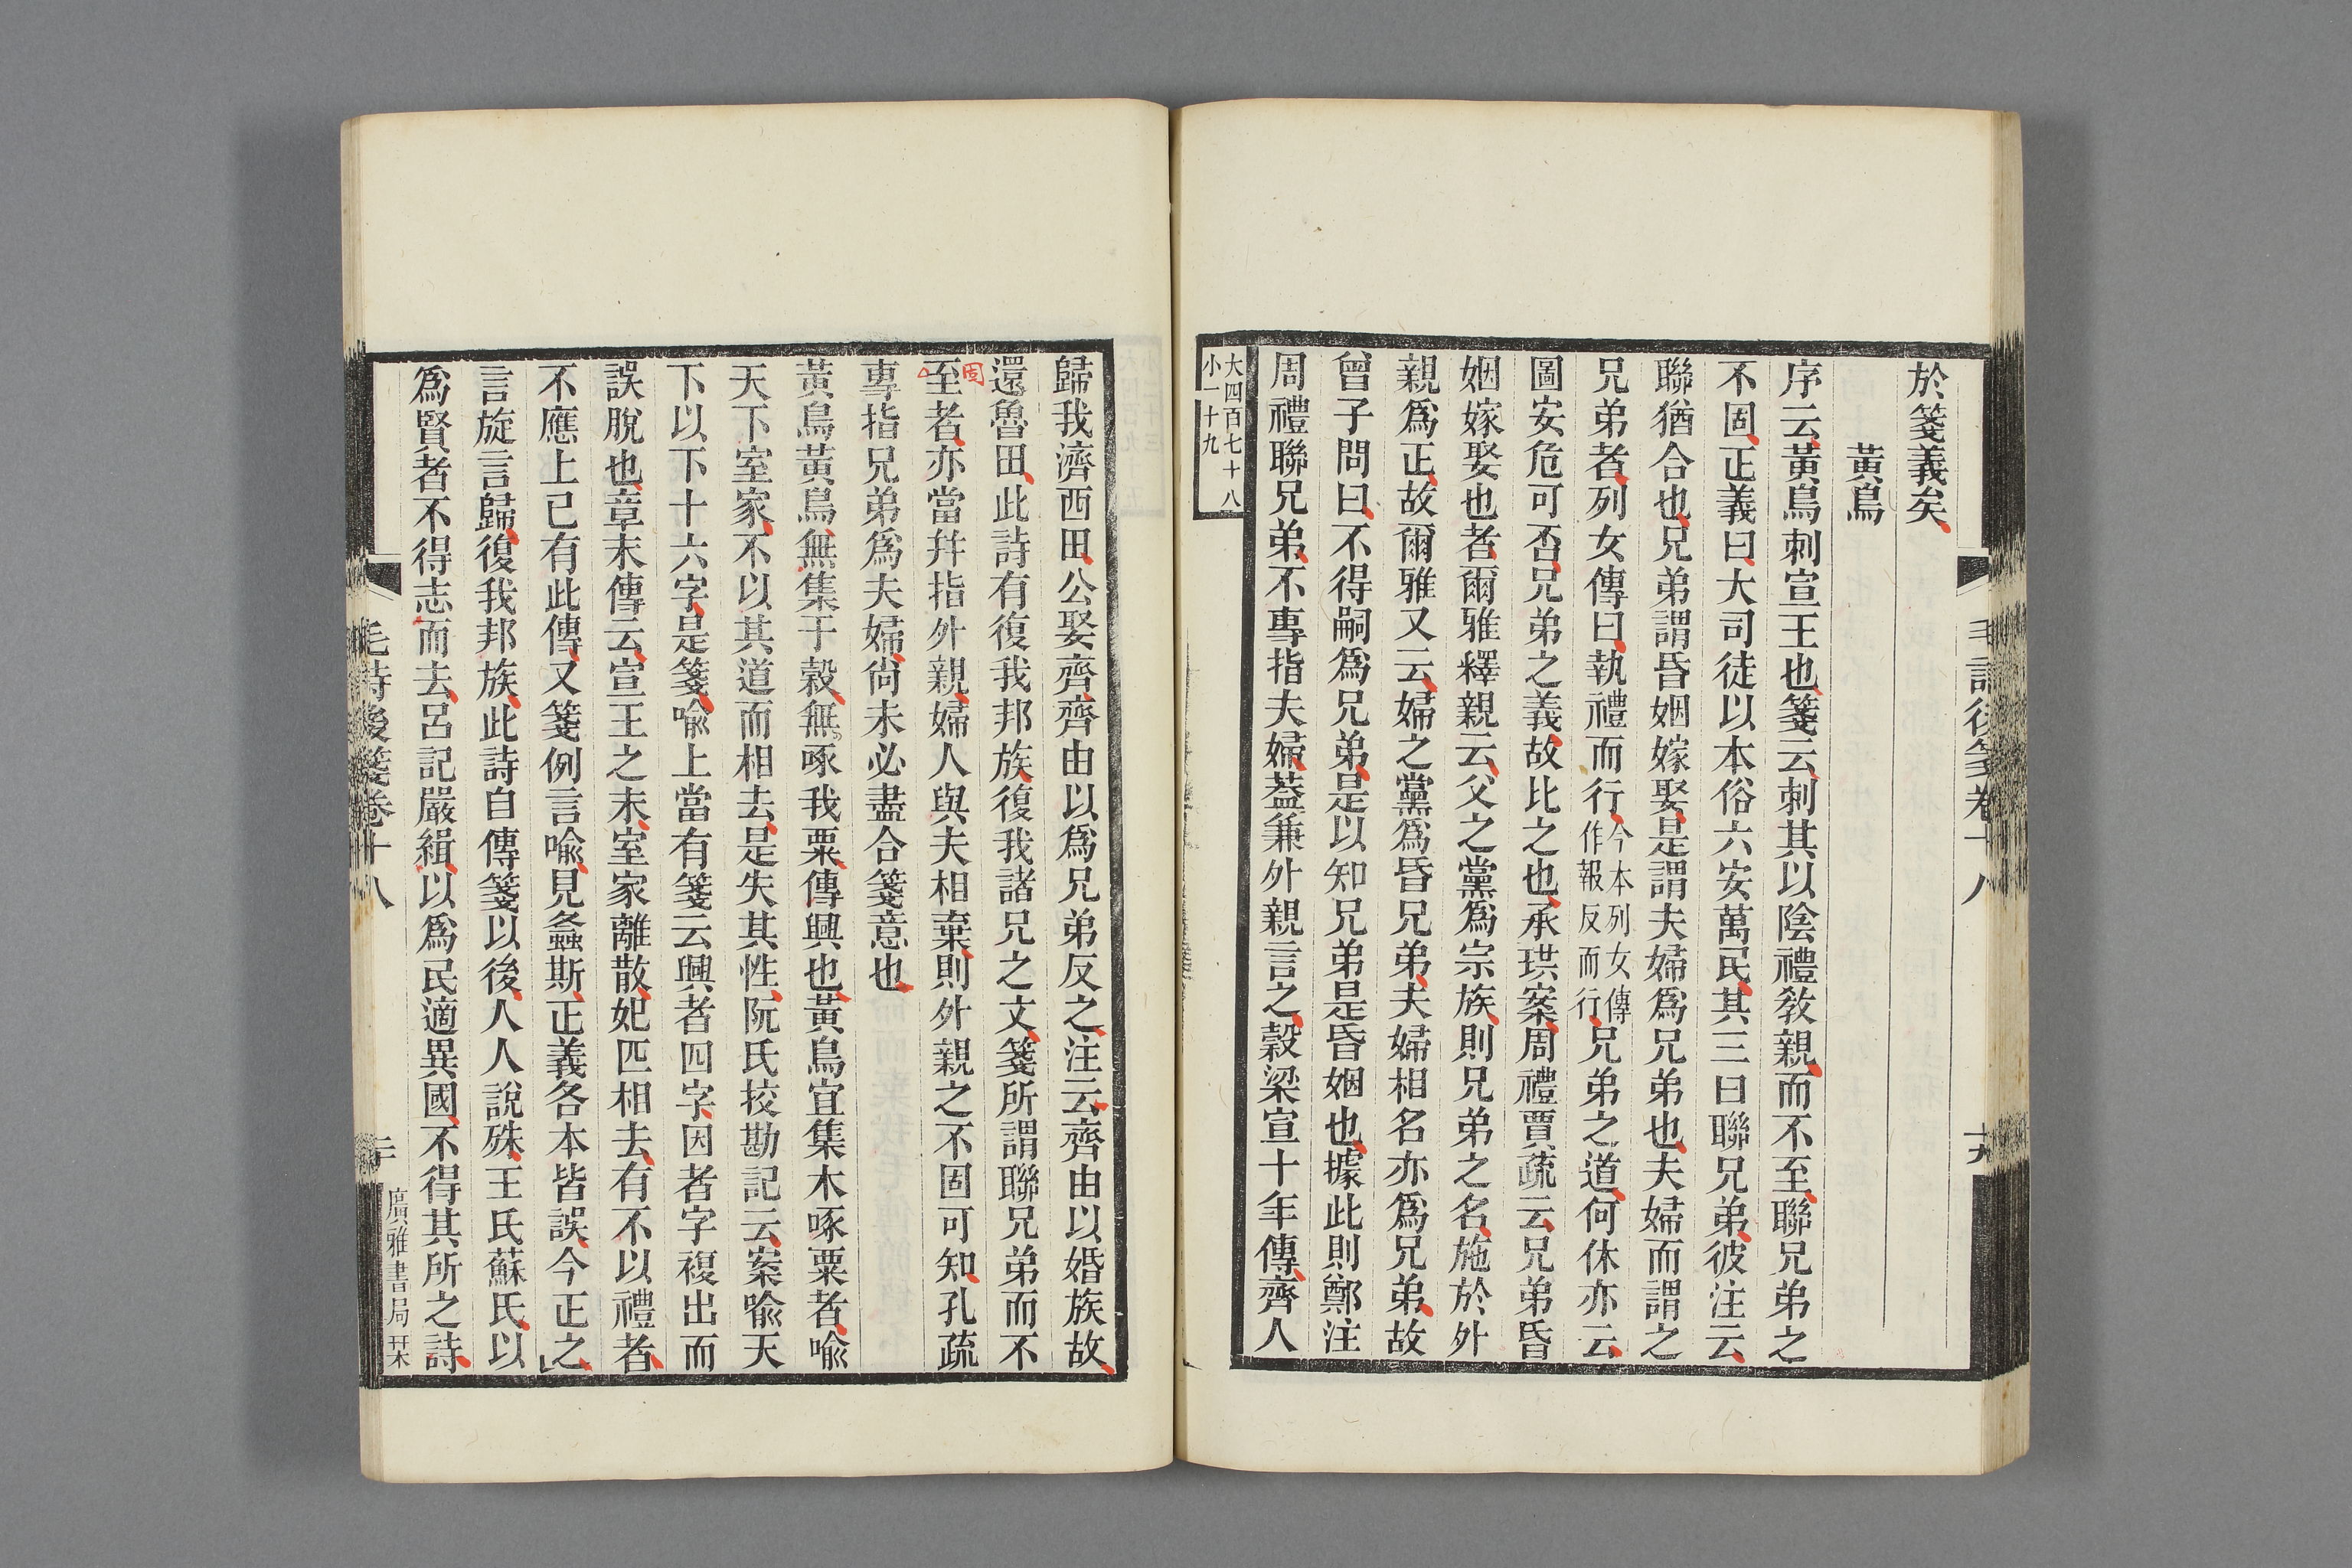 於箋義矣
黃鳥
序云黃鳥刺宣王也箋云刺其以陰禮敎親而不至聯兄弟之
不固正義曰大司徒以本俗六安萬民其三曰聯兄弟彼注云
聯猶合也兄弟謂昏姻嫁娶是謂夫婦爲兄弟也夫婦而謂之
兄弟者列女傳曰執禮而行今本列女傳作報反而行兄弟之道何休亦云
圖安危可否兄弟之義故比之也承珙案周禮賈疏云兄弟昏
姻嫁娶也者爾雅釋親云父之黨爲宗族則兄弟之名施於外
親爲正故爾雅又云婦之黨爲昏兄弟夫婦相名亦爲兄弟故
曾子問曰不得嗣爲兄弟是以知兄弟是昏姻也據此則鄭注
周禮聯兄弟不專指夫婦蓋兼外親言之穀梁宣十年傳齊人
大四百七十八
小一十九
毛詩後箋卷十八
十九
歸我濟西田公娶齊齊由以爲兄弟反之注云齊由以婚族故
還魯田此詩有復我邦族復我諸兄之文箋所謂聯兄弟而不
固
至者亦當幷指外親婦人與夫相棄則外親之不固可知孔疏
專指兄弟爲夫婦尙未必盡合箋意也
黃鳥黃鳥無集于榖無啄我粟傳興也黃鳥宜集木啄粟者喩
天下室家不以其道而相去是失其性阮氏挍勘記云案喩天
下以下十六字是箋喩上當有箋云興者四字因者字複出而
誤脫也章末傳云宣王之末室家離散妃匹相去有不以禮者
不應上已有此傳又箋例言喩見螽斯正義各本皆誤今正之
言旋言歸復我邦族此詩自傳箋以後人人說殊王氏蘇氏以
爲賢者不得志而去呂記嚴緝以爲民適異國不得其所之詩
毛詩後箋卷十八
二十
廣雅書局栞